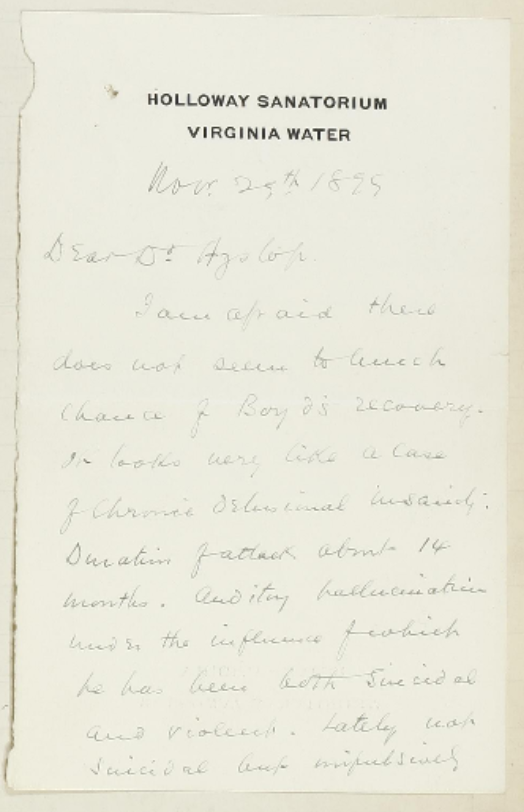 HOLLOWAY SANATORIUM
VIRGINIA WATER
Novr. 29th 1895
Dear Dr Hyslop.
I am afraid there
does not seem to much
chance of Boyd's recovery.
It looks very like a case
of Chronic Delusional insanity.
Duration of attack about 14
months. Auditory hallucination
under the influence of which
he has been both Suicidal
and violent. Lately not
Suicidal but impulsively